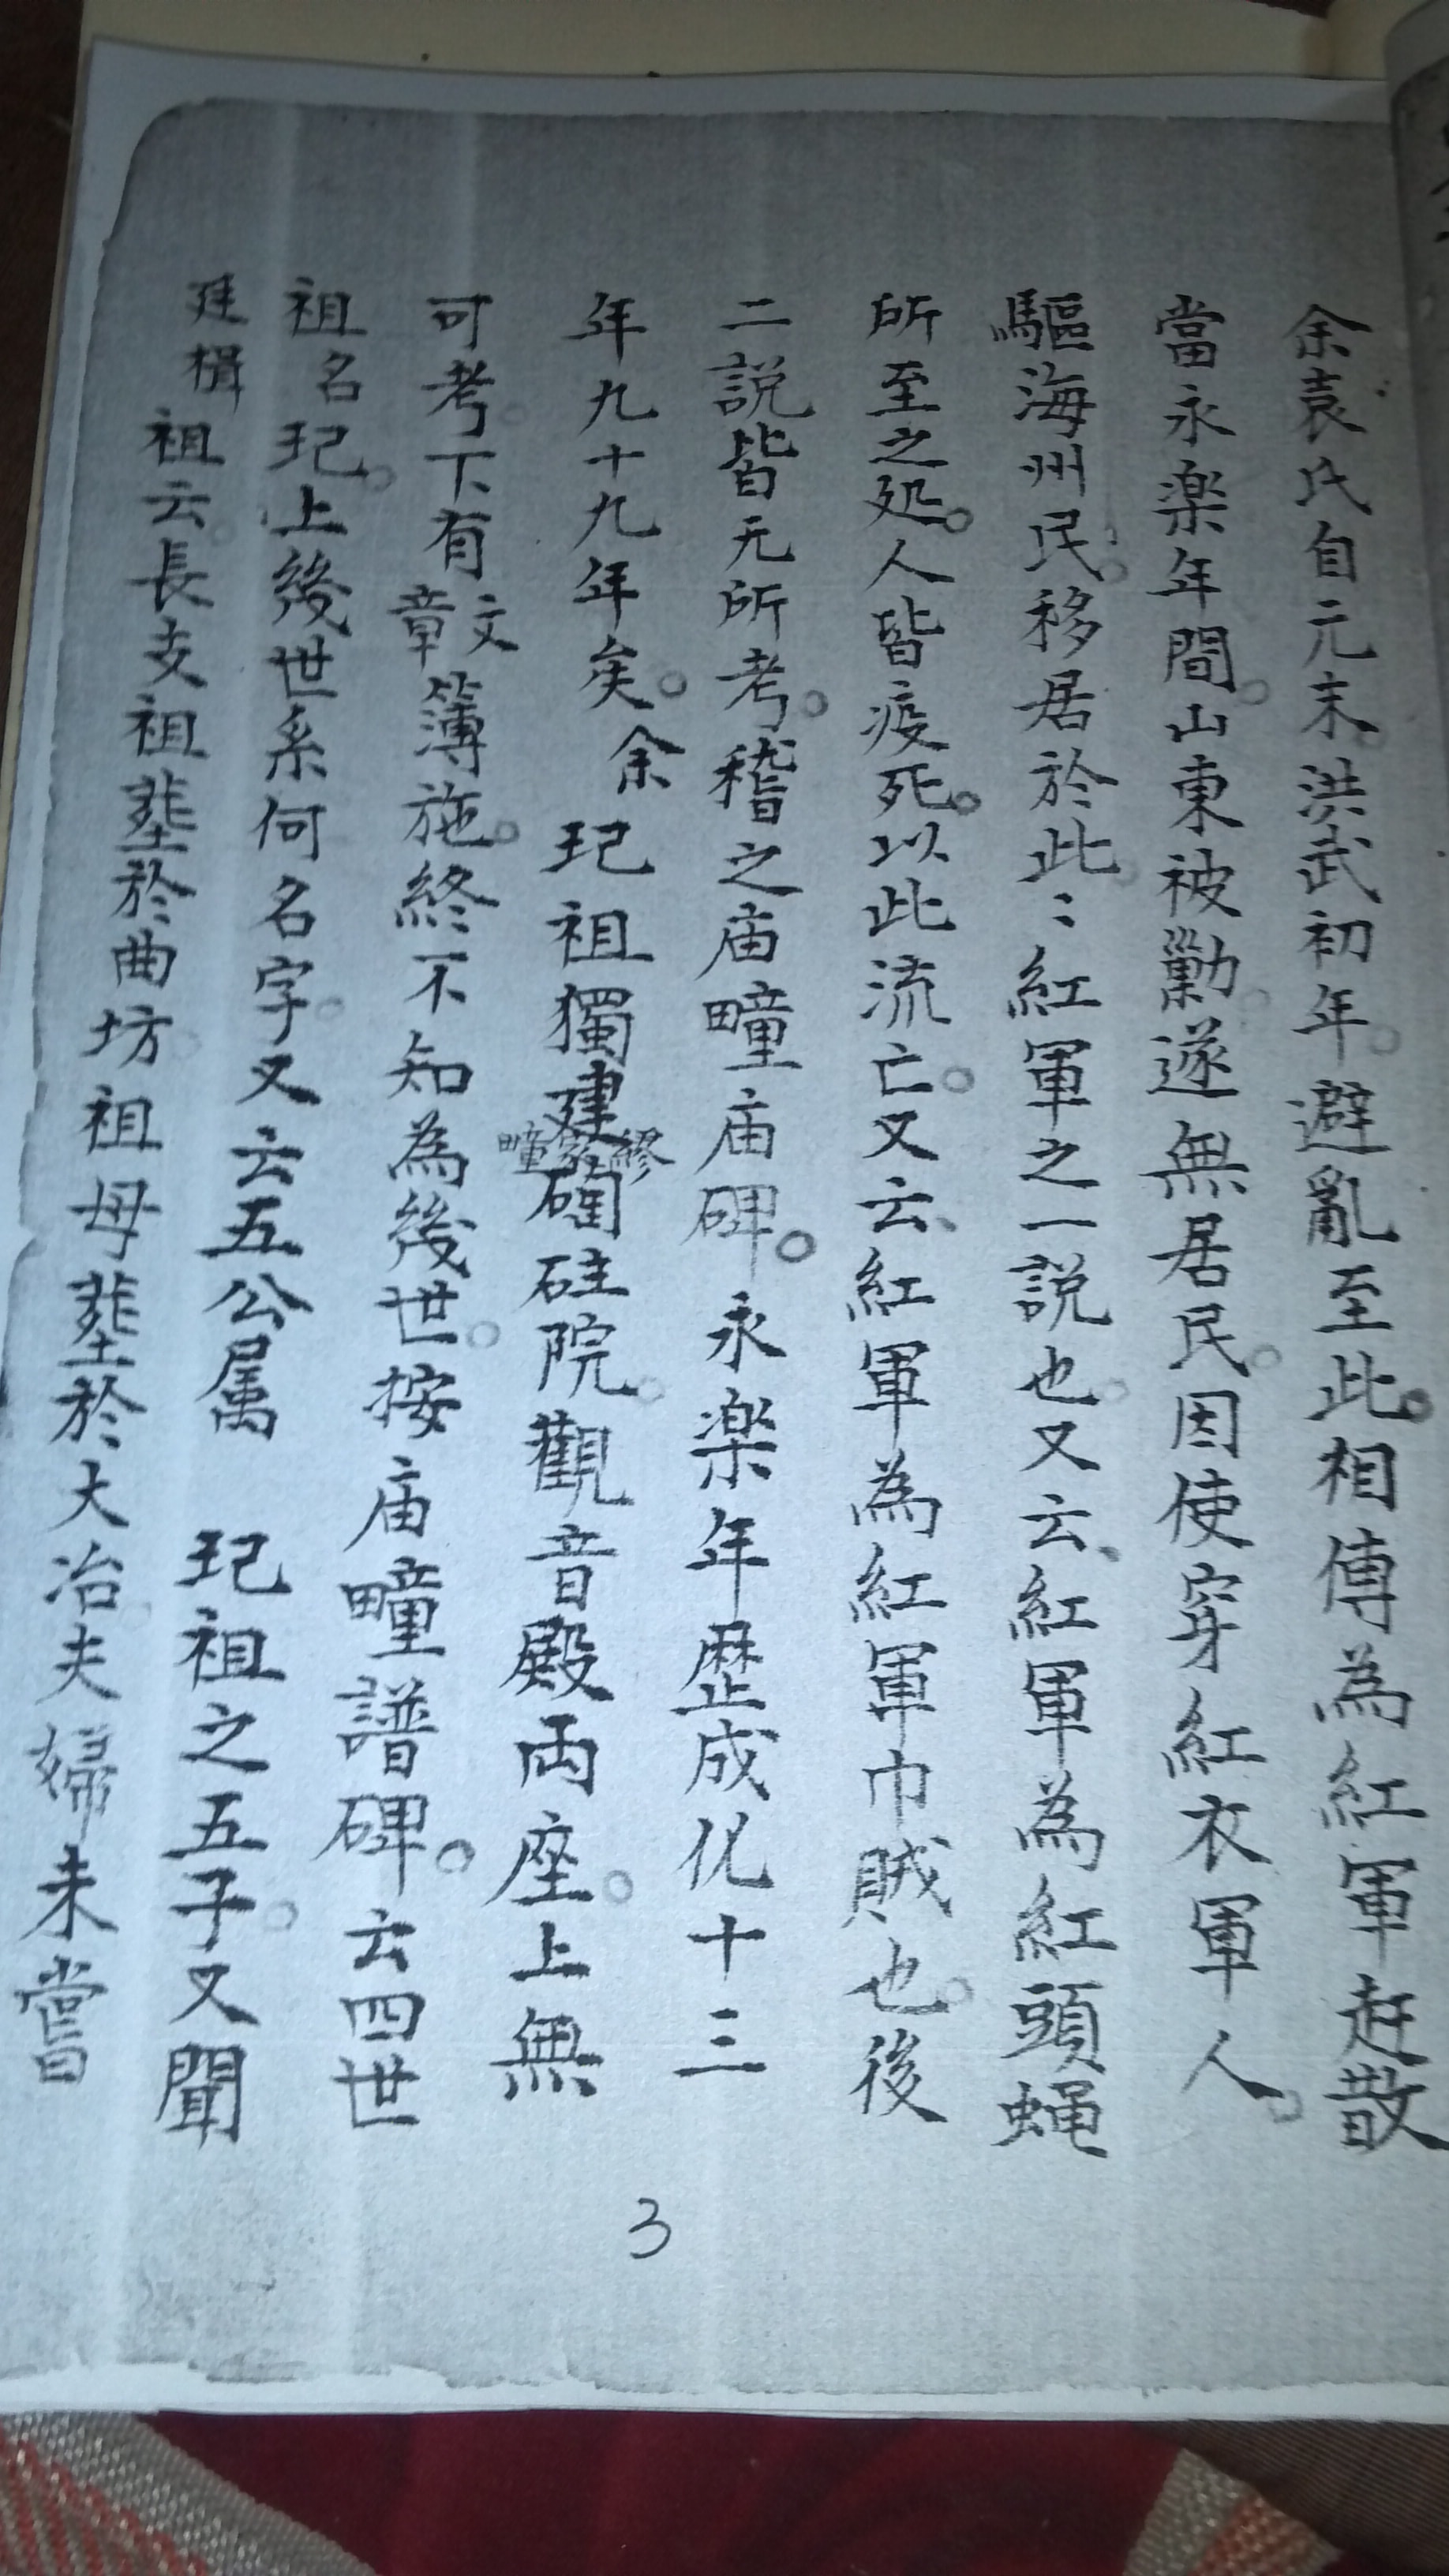 余袁氏自元末洪武初年避亂至此。相傳為紅軍赶散
當永楽年間。山東被勦。遂無居民。因使穿紅衣軍人。
驅海州民。移居於此。：紅軍之一説也。又云、紅軍為紅頭蝇
所至之処。人皆疫死。以此流亡。又云、紅軍為紅軍巾賊也。後
二説皆无所考。稽之庙畽庙碑。永楽年歷成化十三
年九十九年矣。余玘祖獨建碙硅院。觀音殿両座。上無
繆家畽
可考。下有文章簿施。終不知為後世。按庙畽譜碑。云四世
祖名玘。上後世系何名字。又云五公属玘祖之五子。又聞
廷楫祖云。長支祖塟於曲坊。祖母塟於大冶。夫婦未嘗
3